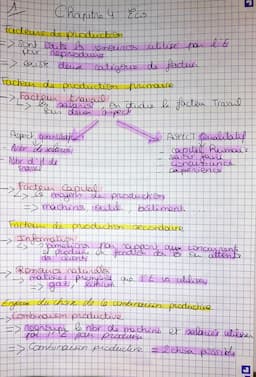 1
Chapitre 4 Eco
Facteurs de production
-> sont toute la ressources utilisé par l'E
pour reproduire
-> existe deux catégorie de facteur
Facteur de production primaire
-> Facteur travail
-> les salariés, on étudie le facteur Travail
sous deux aspect
Aspect quantitatif
Aspect qualitatif
Nbr de salariés
Nbr d'h de
travail
- capital humain
- savoir faire
- expérience
-> Facteur Capital
-> moyen de production
=> machine, outil, bâtiment
Facteur de production secondaire
-> Information
par rapport aux concurrents
de clients
-> Ressources naturelles
matière première que l'E va utiliser
=> gaz,
Enjeux du choix de la combinaison productive
-> Combinaison productive
=> regroupe le nbr de machine et salariés utilisé
par l'E pour produire
=> Combinaison productive = 2 choix possible